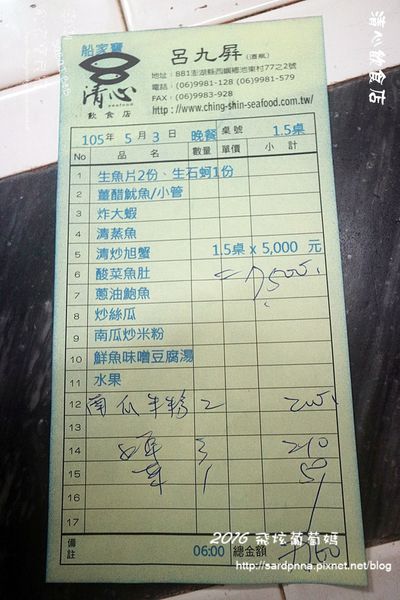 清心飲食店
船家寶
清心
seafood
飲食店
呂九屏(酒瓶)
地址：881澎湖縣西嶼鄉池東村77之2號
電話：(06)9981-128 (06)9981-579
FAX：(06)9983-928
http://www.ching-shin-seafood.com.tw/
105年 5月 3日 晚餐 桌號 1.5桌
No 品名 數量 單價 小計
1 生魚片2份、生石蚵1份
2 薑醋魷魚/小管
3 炸大蝦
4 清蒸魚
5 清炒旭蟹 1.5桌 x 5,000 元
6 酸菜魚肚 7500
7 蔥油鮑魚
8 炒絲瓜
9 南瓜炒米粉
10 鮮魚味噌豆腐湯
11 水果
12 南瓜米粉 2
14 3 210
15 1 50
16
17
備註 06:00 總金額
2016 飛炫葡萄媽
http://sardpnna.pixnet.net/blog